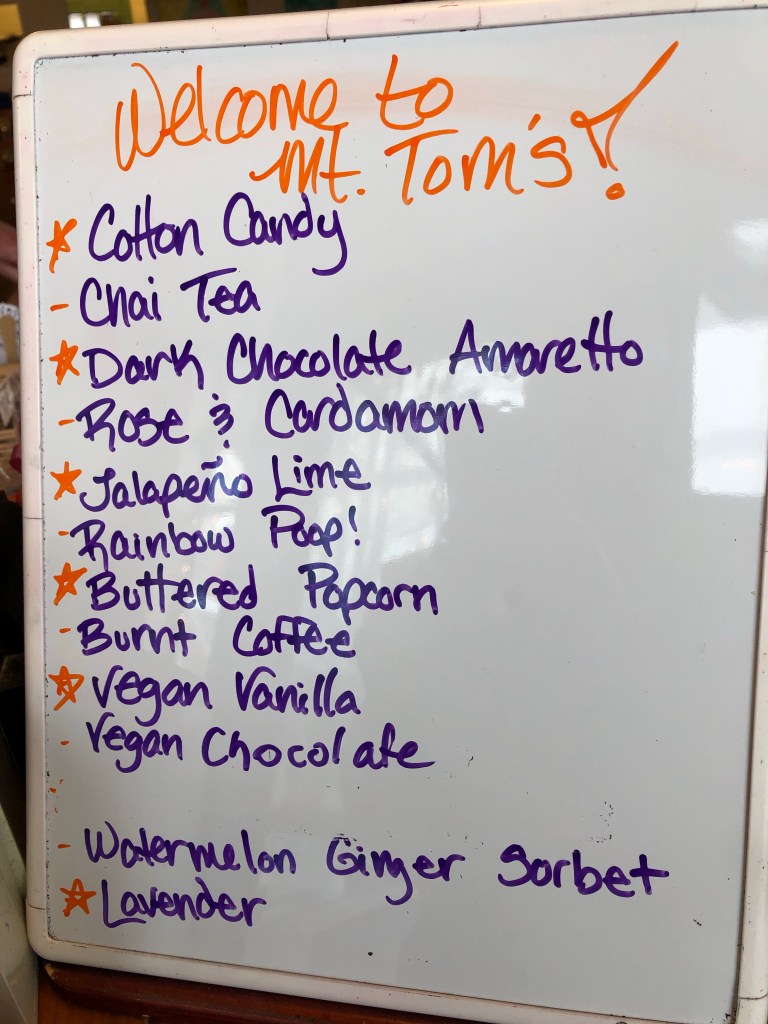 Welcome to
Mt. Tom's!
☆ Cotton Candy
- Chai Tea
☆ Dark Chocolate Amaretto
- Rose & Cardamom
☆ Jalapeño Lime
- Rainbow Poop!
☆ Buttered Popcorn
- Burnt Coffee
☆ Vegan Vanilla
- Vegan Chocolate
- Watermelon Ginger Sorbet
☆ Lavender